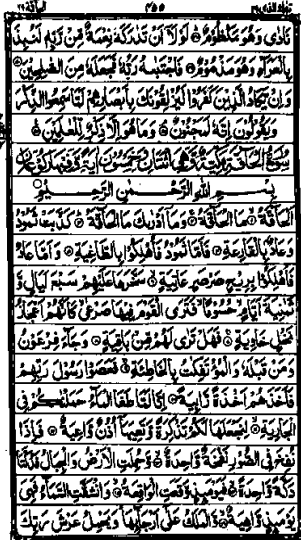 نَادَىٰ وَهُوَ مَكْظُومٌ لَوْلَا أَنْ تَدَارَكَهُ نِعْمَةٌ مِنْ رَبِّهِ لَنُبِذَ
بِالْعَرَاءِ وَهُوَ مَذْمُومٌ فَاجْتَبَاهُ رَبُّهُ فَجَعَلَهُ مِنَ الصَّالِحِينَ
وَإِنْ يَكَادُ الَّذِينَ كَفَرُوا لَيُزْلِقُونَكَ بِأَبْصَارِهِمْ لَمَّا سَمِعُوا الذِّكْرَ
وَيَقُولُونَ إِنَّهُ لَمَجْنُونٌ وَمَا هُوَ إِلَّا ذِكْرٌ لِلْعَالَمِينَ
سُورَةُ الْحَاقَّةِ مَكِّيَّةٌ وَهِيَ اثْنَتَانِ وَخَمْسُونَ آيَةً
بِسْمِ اللَّهِ الرَّحْمَٰنِ الرَّحِيمِ
الْحَاقَّةُ مَا الْحَاقَّةُ وَمَا أَدْرَاكَ مَا الْحَاقَّةُ كَذَّبَتْ ثَمُودُ
وَعَادٌ بِالْقَارِعَةِ فَأَمَّا ثَمُودُ فَأُهْلِكُوا بِالطَّاغِيَةِ وَأَمَّا عَادٌ
فَأُهْلِكُوا بِرِيحٍ صَرْصَرٍ عَاتِيَةٍ سَخَّرَهَا عَلَيْهِمْ سَبْعَ لَيَالٍ وَ
ثَمَانِيَةَ أَيَّامٍ حُسُومًا فَتَرَى الْقَوْمَ فِيهَا صَرْعَىٰ كَأَنَّهُمْ أَعْجَازُ
نَخْلٍ خَاوِيَةٍ فَهَلْ تَرَىٰ لَهُمْ مِنْ بَاقِيَةٍ وَجَاءَ فِرْعَوْنُ
وَمَنْ قَبْلَهُ وَالْمُؤْتَفِكَاتُ بِالْخَاطِئَةِ فَعَصَوْا رَسُولَ رَبِّهِمْ
فَأَخَذَهُمْ أَخْذَةً رَابِيَةً إِنَّا لَمَّا طَغَى الْمَاءُ حَمَلْنَاكُمْ فِي
الْجَارِيَةِ لِنَجْعَلَهَا لَكُمْ تَذْكِرَةً وَتَعِيَهَا أُذُنٌ وَاعِيَةٌ فَإِذَا
نُفِخَ فِي الصُّورِ نَفْخَةٌ وَاحِدَةٌ وَحُمِلَتِ الْأَرْضُ وَالْجِبَالُ فَدُكَّتَا
دَكَّةً وَاحِدَةً فَيَوْمَئِذٍ وَقَعَتِ الْوَاقِعَةُ وَانْشَقَّتِ السَّمَاءُ فَهِيَ
يَوْمَئِذٍ وَاهِيَةٌ وَالْمَلَكُ عَلَىٰ أَرْجَائِهَا وَيَحْمِلُ عَرْشَ رَبِّكَ